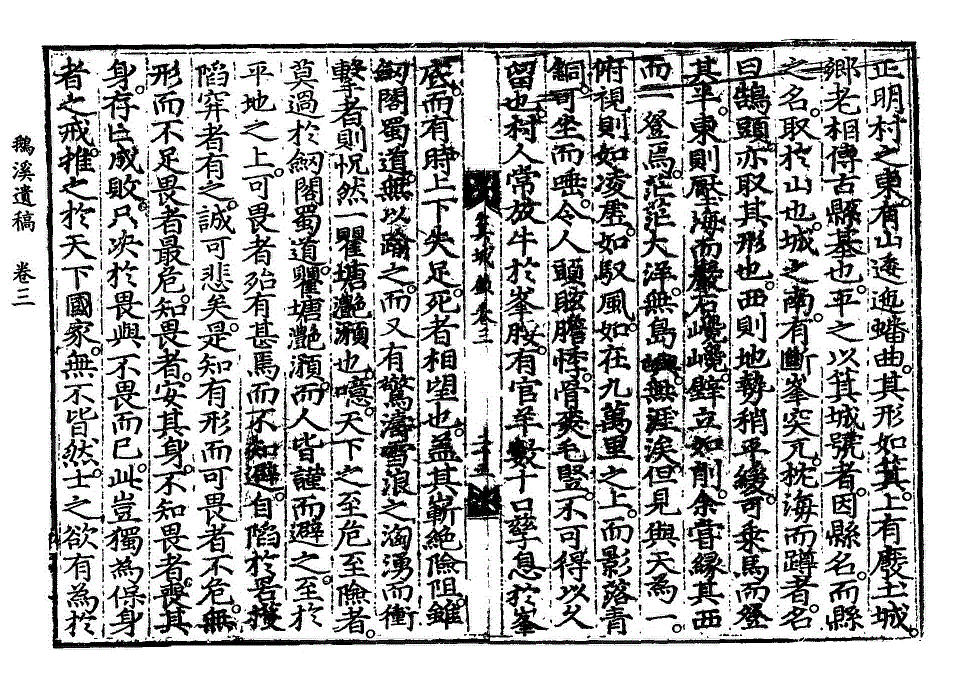 正明村之東有山逶迤蟠曲其形如箕上有廢土城
鄕老相傳古縣基也平之以箕城號者因縣名而縣
之名取於山也城之南有斷峯突兀枕海而蹲者名
曰鵠頭亦取其形也西則地勢稍平緩可乘馬而登
其平東則壓海而巖石巉巉壁立如削余嘗緣其西
而一登焉茫茫大洋無島嶼無涯涘但見與天爲一
俯視則如凌虛如馭風如在九萬里之上而影落靑
銅可坐而唾令人頭眩膽悸骨爽毛竪不可得以久
留也村人常放牛於峯胺有官羊數十口孳息於峯
底而有時上下失足死者相望也盖其嶄絶險阻雖
劒閣蜀道無以踰之而又有驚濤雪浪之洶湧而衝
擊者則怳然一瞿塘灔澦也噫天下之至危至險者
莫過於劒閣蜀道瞿塘灔澦而人皆謹而避之至於
平地之上可畏者殆有甚焉而不知避自陷於罟擭
陷穽者有之誠可悲矣是知有形而可畏者不危無
形而不足畏者最危知畏者安其身不知畏者喪其
身存亡成敗只決於畏與不畏而已此豈獨為保身
者之戒推之於天下國家無不皆然士之欲有為於
箕城錄卷三
二十五
鵝溪遺稿 卷三